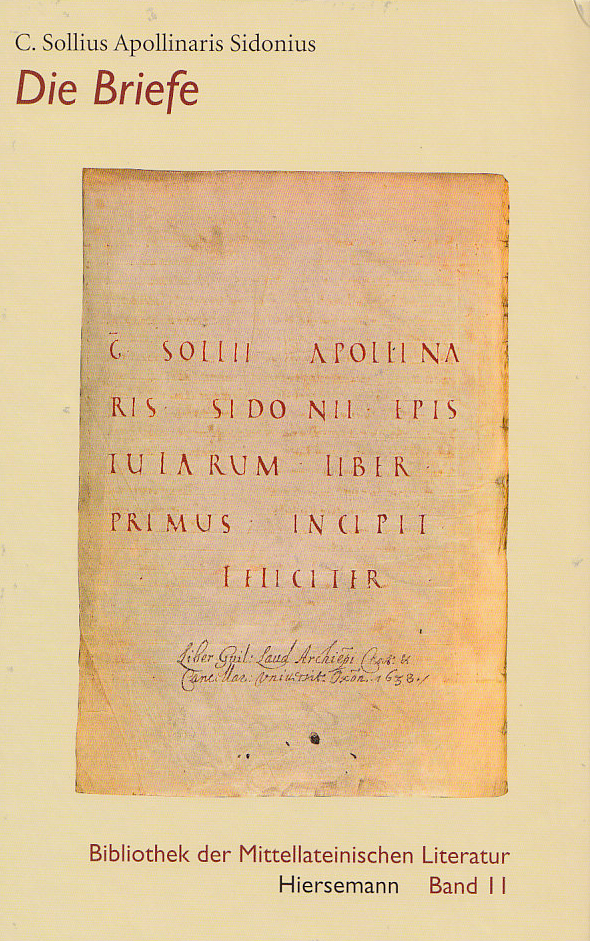 C. Sollius Apollinaris Sidonius
Die Briefe
C̄ SOLLII APOLLINA
RIS · SIDONII · EPIS
TULARUM · LIBER ·
PRIMUS · INCIPIT
FELICITER
Liber Guil: Laud Archiepi Cant: &
Canc̄ellar. Vniuersit: Oxōn. 1638.
Bibliothek der Mittellateinischen Literatur
Hiersemann Band 11